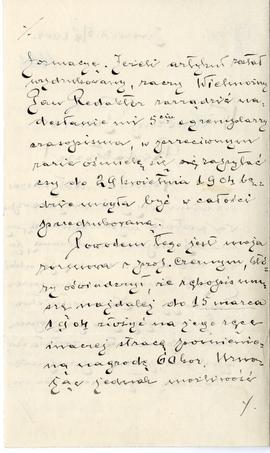 ./.
formacyę. Jeżeli artykuł został
wydrukowany, raczy Wielmożny
Pan Redaktor zarządzić na-
desłanie mi 5ciu egzemplarzy
czasopisma, w przeciwnym
razie ośmielę się się zapytać
czy do 29 kwietnia 1904 bę-
dzie mogła być w całości
przedrukowana.
Powodem tego jest moja
rozmowa z prof. Czernym, któ-
ry oświadczył, że rękopis mu-
szę najdalej do 15 marca
1904 złożyć na jego ręce
inaczej stracę pomienio-
ną nagrodę 60 kor. Uzna-
jąc jednak możliwość
./.